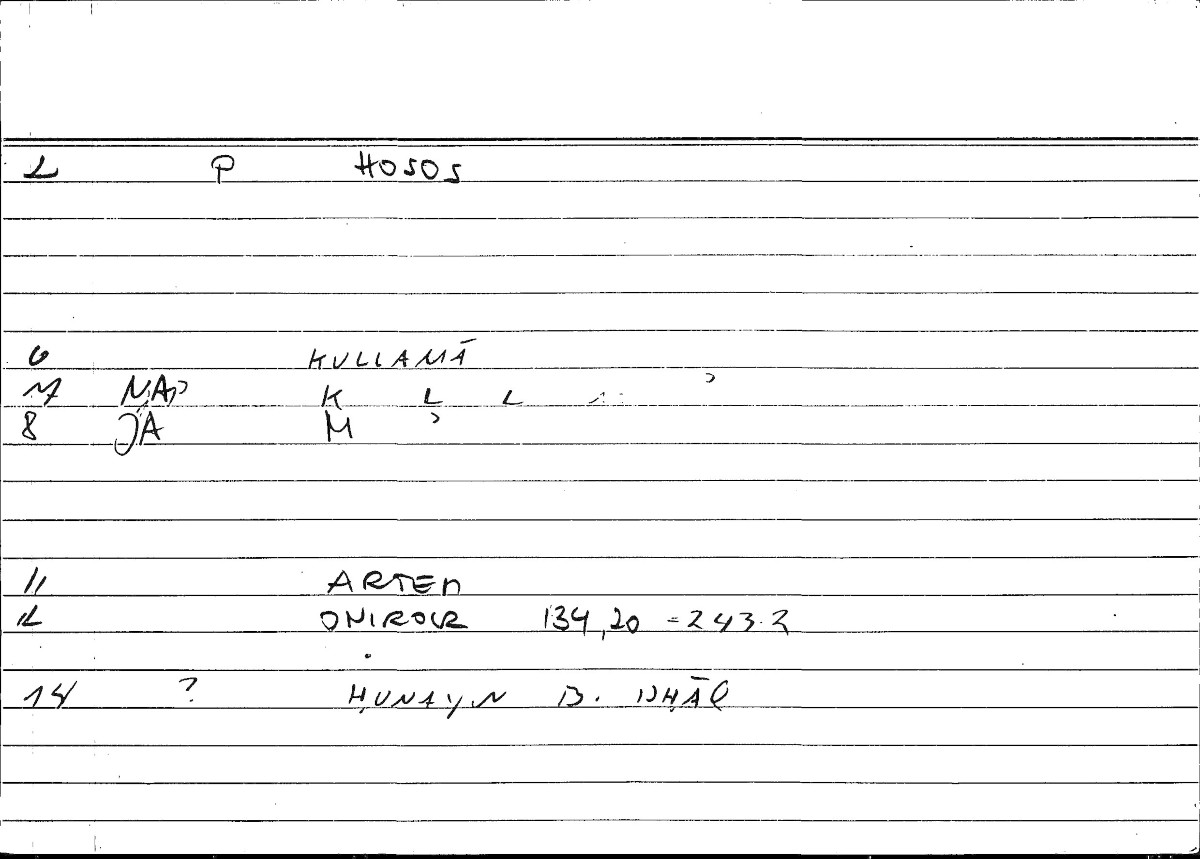 2 P HOSOS
6 KULLAMĀ
7 NAP K L L
8 JA M ʾ
11 ARTEM
12 ONIROCR 134,20 = 243.2
14 ? ḤUNAYN B. ISḤĀQ